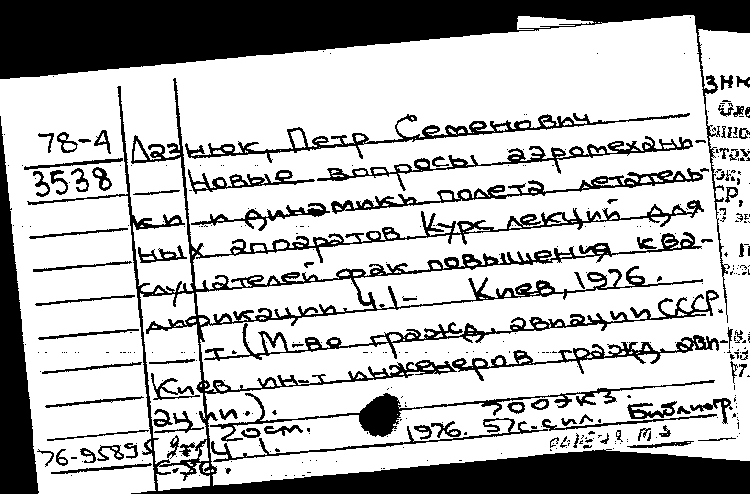 78-4 Лазнюк, Петр Семенович.
3538 Новые вопросы аэромехани-
ки и динамики полета летатель-
ных аппаратов. Курс лекций для
слушателей фак. повышения ква-
лификации. Ч.1- Киев, 1976.
т. (М-во гражд. авиации СССР.
Киев. ин-т инженеров гражд. ави-
ации.).
20см. 700экз.
76-95895 Ч.1. 1976. 57с. с ил. Библиогр.
с.56.